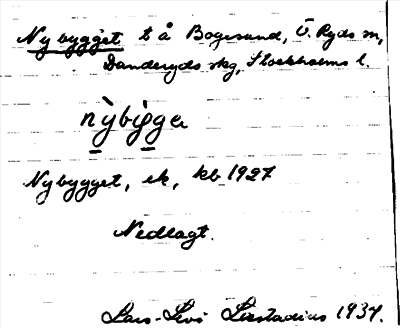 Nybygget t å Bogesund, Ö. Ryds sn,
Danderyds skg, Stockholms l.
nỳbi̱g̱ga
Nybygget, ek, kb 1927
Nedlagt.
Lars-Levi Læstadius 1937.